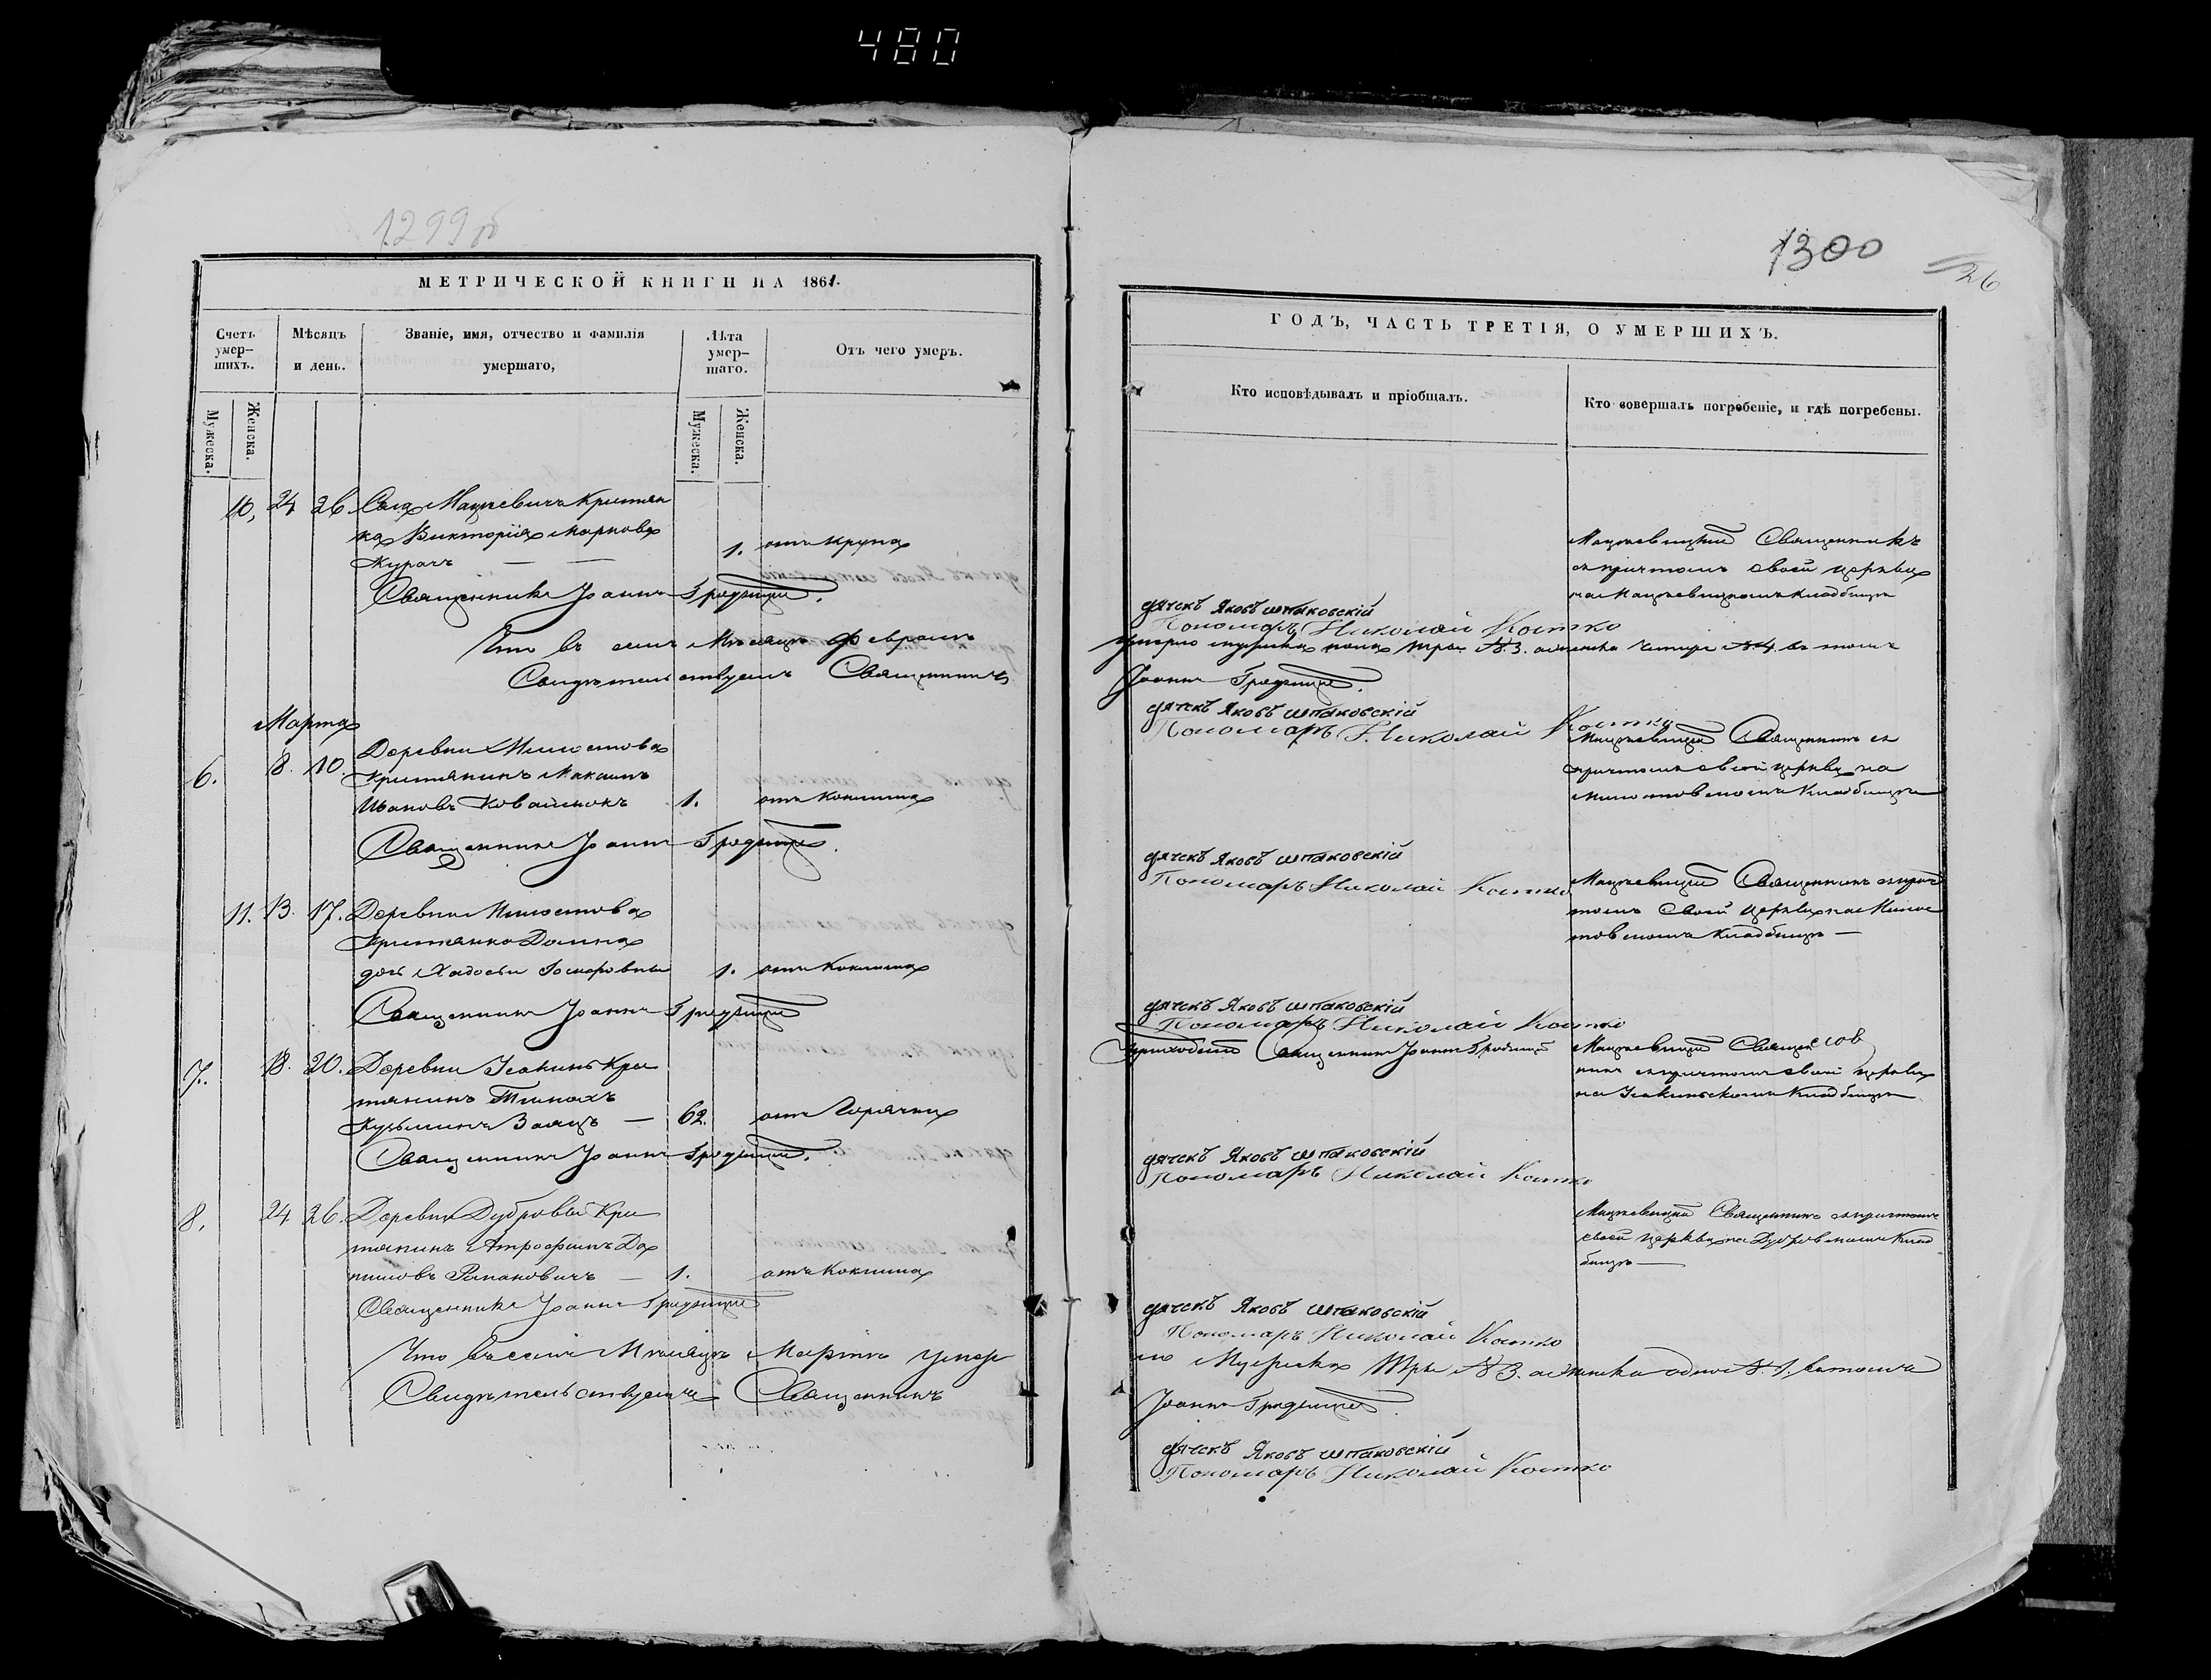 480
1299б
МЕТРИЧЕСКОЙ КНИГИ НА 1861.
Счетъ умер-шихъ.
Мѣсяцъ и день.
Званіе, имя, отчество и фамилія умершаго,
Лѣта умер-шаго.
Отъ чего умеръ.
Мужеска.
Женска.
Мужеска.
Женска.
10, 24 26 Села Мацкевичъ Крестян
ка Викторія Маркова
1. отъ крупа
Журагъ
Священникъ Іоаннъ
Что въ семъ Мѣсяцѣ Февралѣ
Свидѣтельствуемъ Священникъ
Марта
6. 8. 10. Деревни Милостова
Крестянинъ Максимъ
Ивановъ Ковалюкъ 1. отъ Коклюша
Священникъ Іоаннъ
11. 13. 17. Деревни Милостова
Крестянка Домна
дочь Хадосьи 1. отъ Коклюша
Священникъ Іоаннъ
7. 18. 20. Деревни Кре
стянинъ
Кузьминъ Заяцъ — 62. отъ Горячки
Священникъ Іоаннъ
8. 24 26. Деревни Дубровы Кре
стянинъ Да
ниловъ Романовичъ — 1. отъ Коклюша
Священникъ Іоаннъ
Что въ семъ Мѣсяцѣ Мартѣ умер
Свидѣтельствуемъ Священникъ
1300
26
ГОДЪ, ЧАСТЬ ТРЕТІЯ, О УМЕРШИХЪ.
Кто исповѣдывалъ и пріобщалъ.
Кто совершалъ погребеніе, и гдѣ погребены.
Мацкевицкій Священникъ
съ причтомъ своей церкви
на Мацкевицкомъ Кладбищѣ
дячекъ Яковъ Шпаковскій
Пономаръ Николай Костко
умерло мужеска пола три №3. а женска четыре №4. въ томъ
Іоаннъ
дячекъ Яковъ Шпаковскій
Пономаръ Николай Костко
Мацкевицкій Священникъ съ
причтомъ своей церкви на
Милостовскомъ Кладбищѣ
дячекъ Яковъ Шпаковскій
Пономаръ Николай Костко
Мацкевицкій Священникъ съ прич
томъ своей церкви на Милос
товскомъ Кладбищѣ —
дячекъ Яковъ Шпаковскій
Пономаръ Николай Костко
Приходскій Священникъ Іоаннъ
Мацкевицкій Священ
никъ съ причтомъ своей церкви
на Кладбищѣ
дячекъ Яковъ Шпаковскій
Пономаръ Николай Костко
Мацкевицкій Священникъ съ причтомъ
своей церкви на Дубровскомъ Клад
бищѣ —
дячекъ Яковъ Шпаковскій
Пономаръ Николай Костко
ло Мужеска Три №3. а женска одно №1. въ томъ
Іоаннъ
дячекъ Яковъ Шпаковскій
Пономаръ Николай Костко